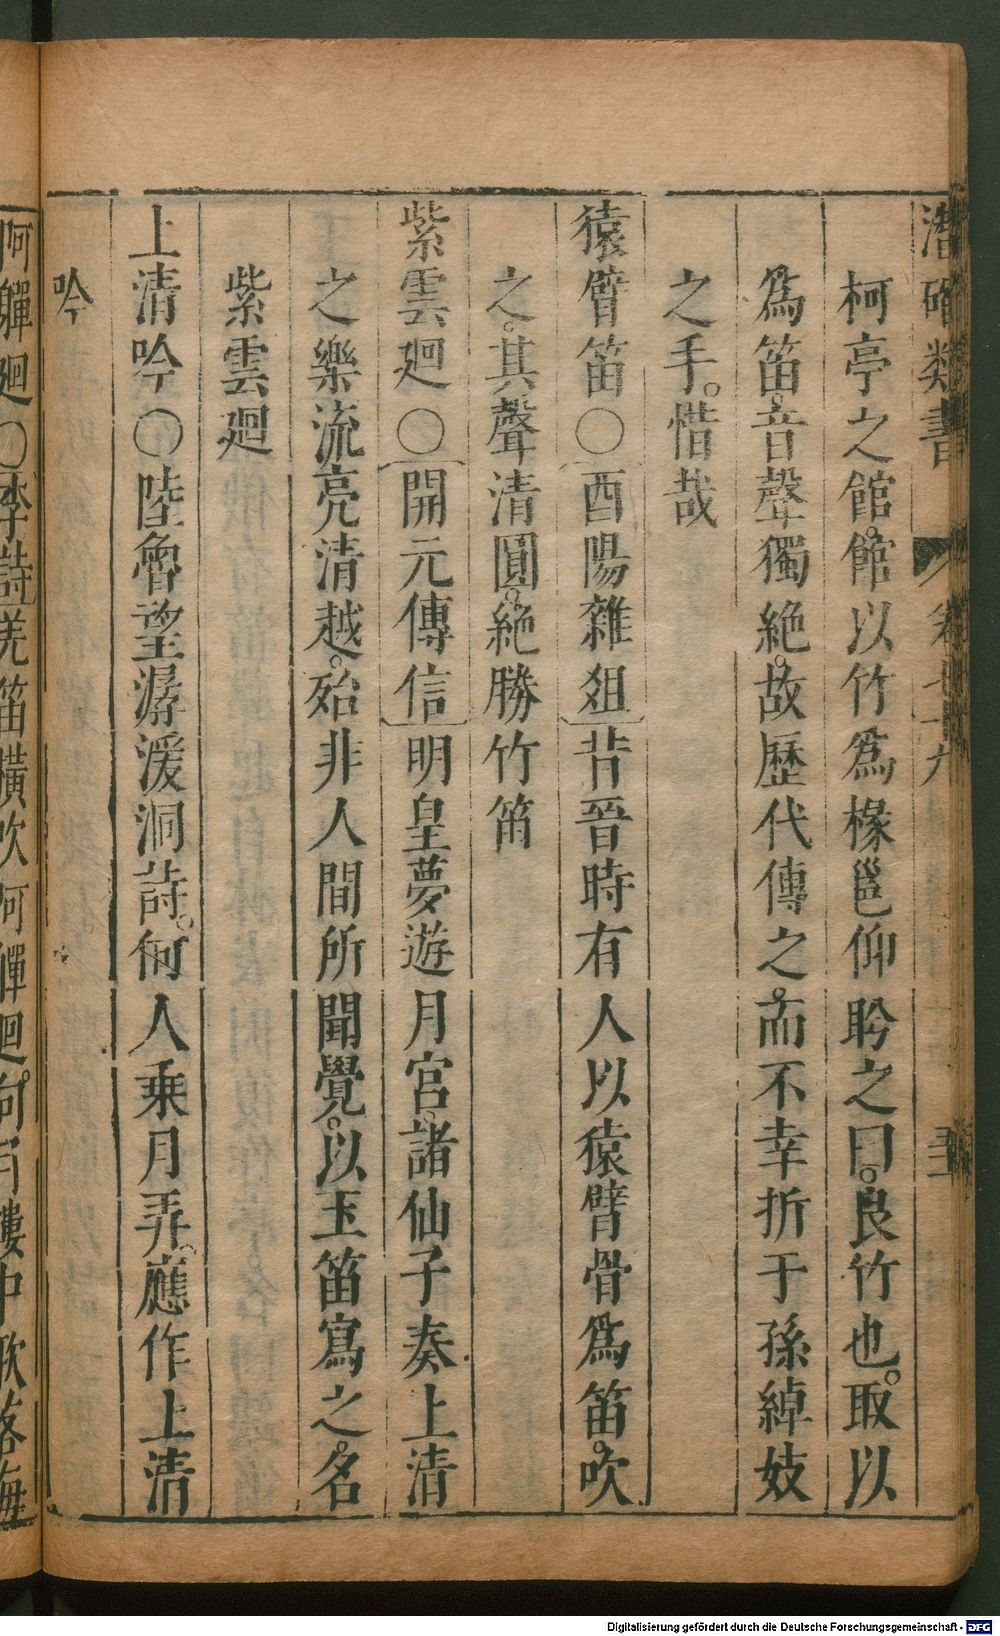 潛確類書 卷七十九
柯亭之館。館以竹爲椽邕仰盻之曰。良竹也。取以
爲笛。音聲獨絶。故歷代傳之。而不幸折于孫綽妓
之手。惜哉
猿臂笛〇酉陽雜爼昔晉時有人以猿臂骨爲笛。吹
之。其聲清圓。絶勝竹笛
紫雲廻〇開元傳信明皇夢遊月宫。諸仙子奏上清
之樂流亮清越。殆非人間所聞覺。以玉笛寫之。名
紫雲廻
上清吟〇陸魯望潺湲洞詩。何人乗月弄。應作上清
吟
阿嚲廻〇李詩羌笛橫吹阿嚲廻。向月樓中吹落梅
Digitalisierung gefördert durch die Deutsche Forschungsgemeinschaft - DFG